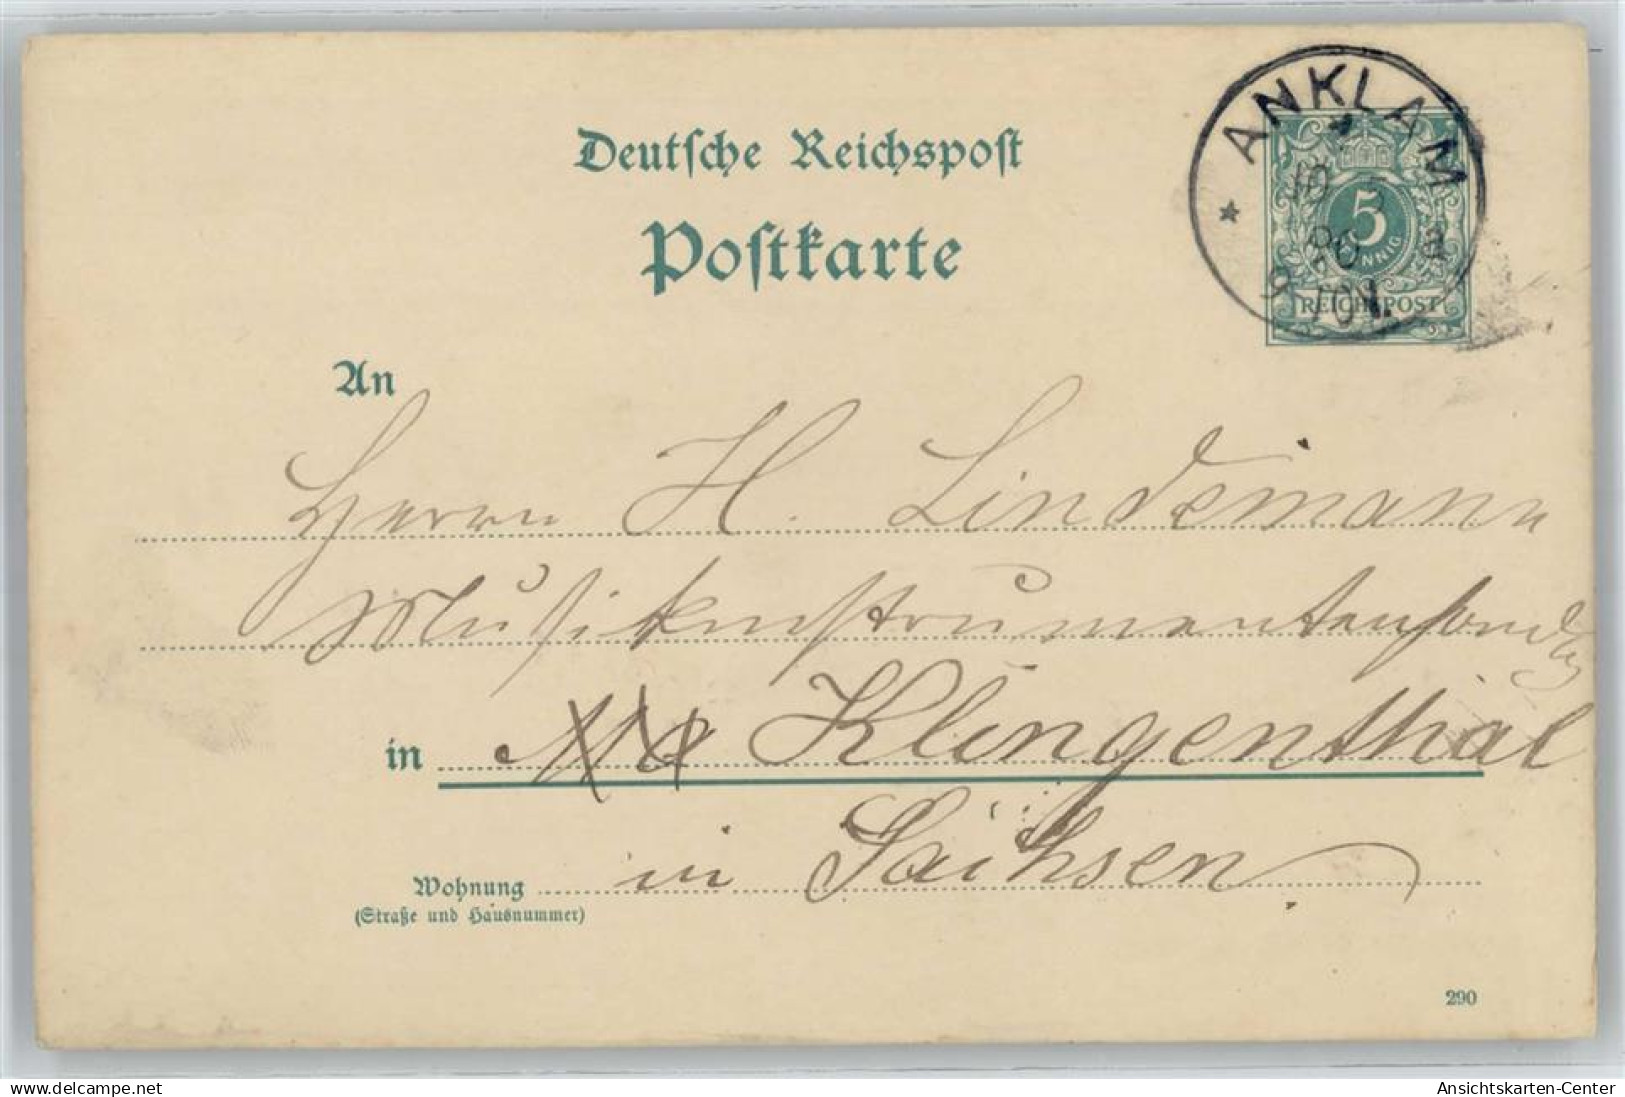 Deutsche Reichspost
Postkarte
ANKLAM
* *
10
90
9 10 V.
a
5
PFENNIG
REICHSPOST
An
Herrn H. Lindemann
in Klingenthal
in Sachsen
Wohnung
(Straße und Hausnummer)
290
oldthing.de
Ansichtskarten-Center